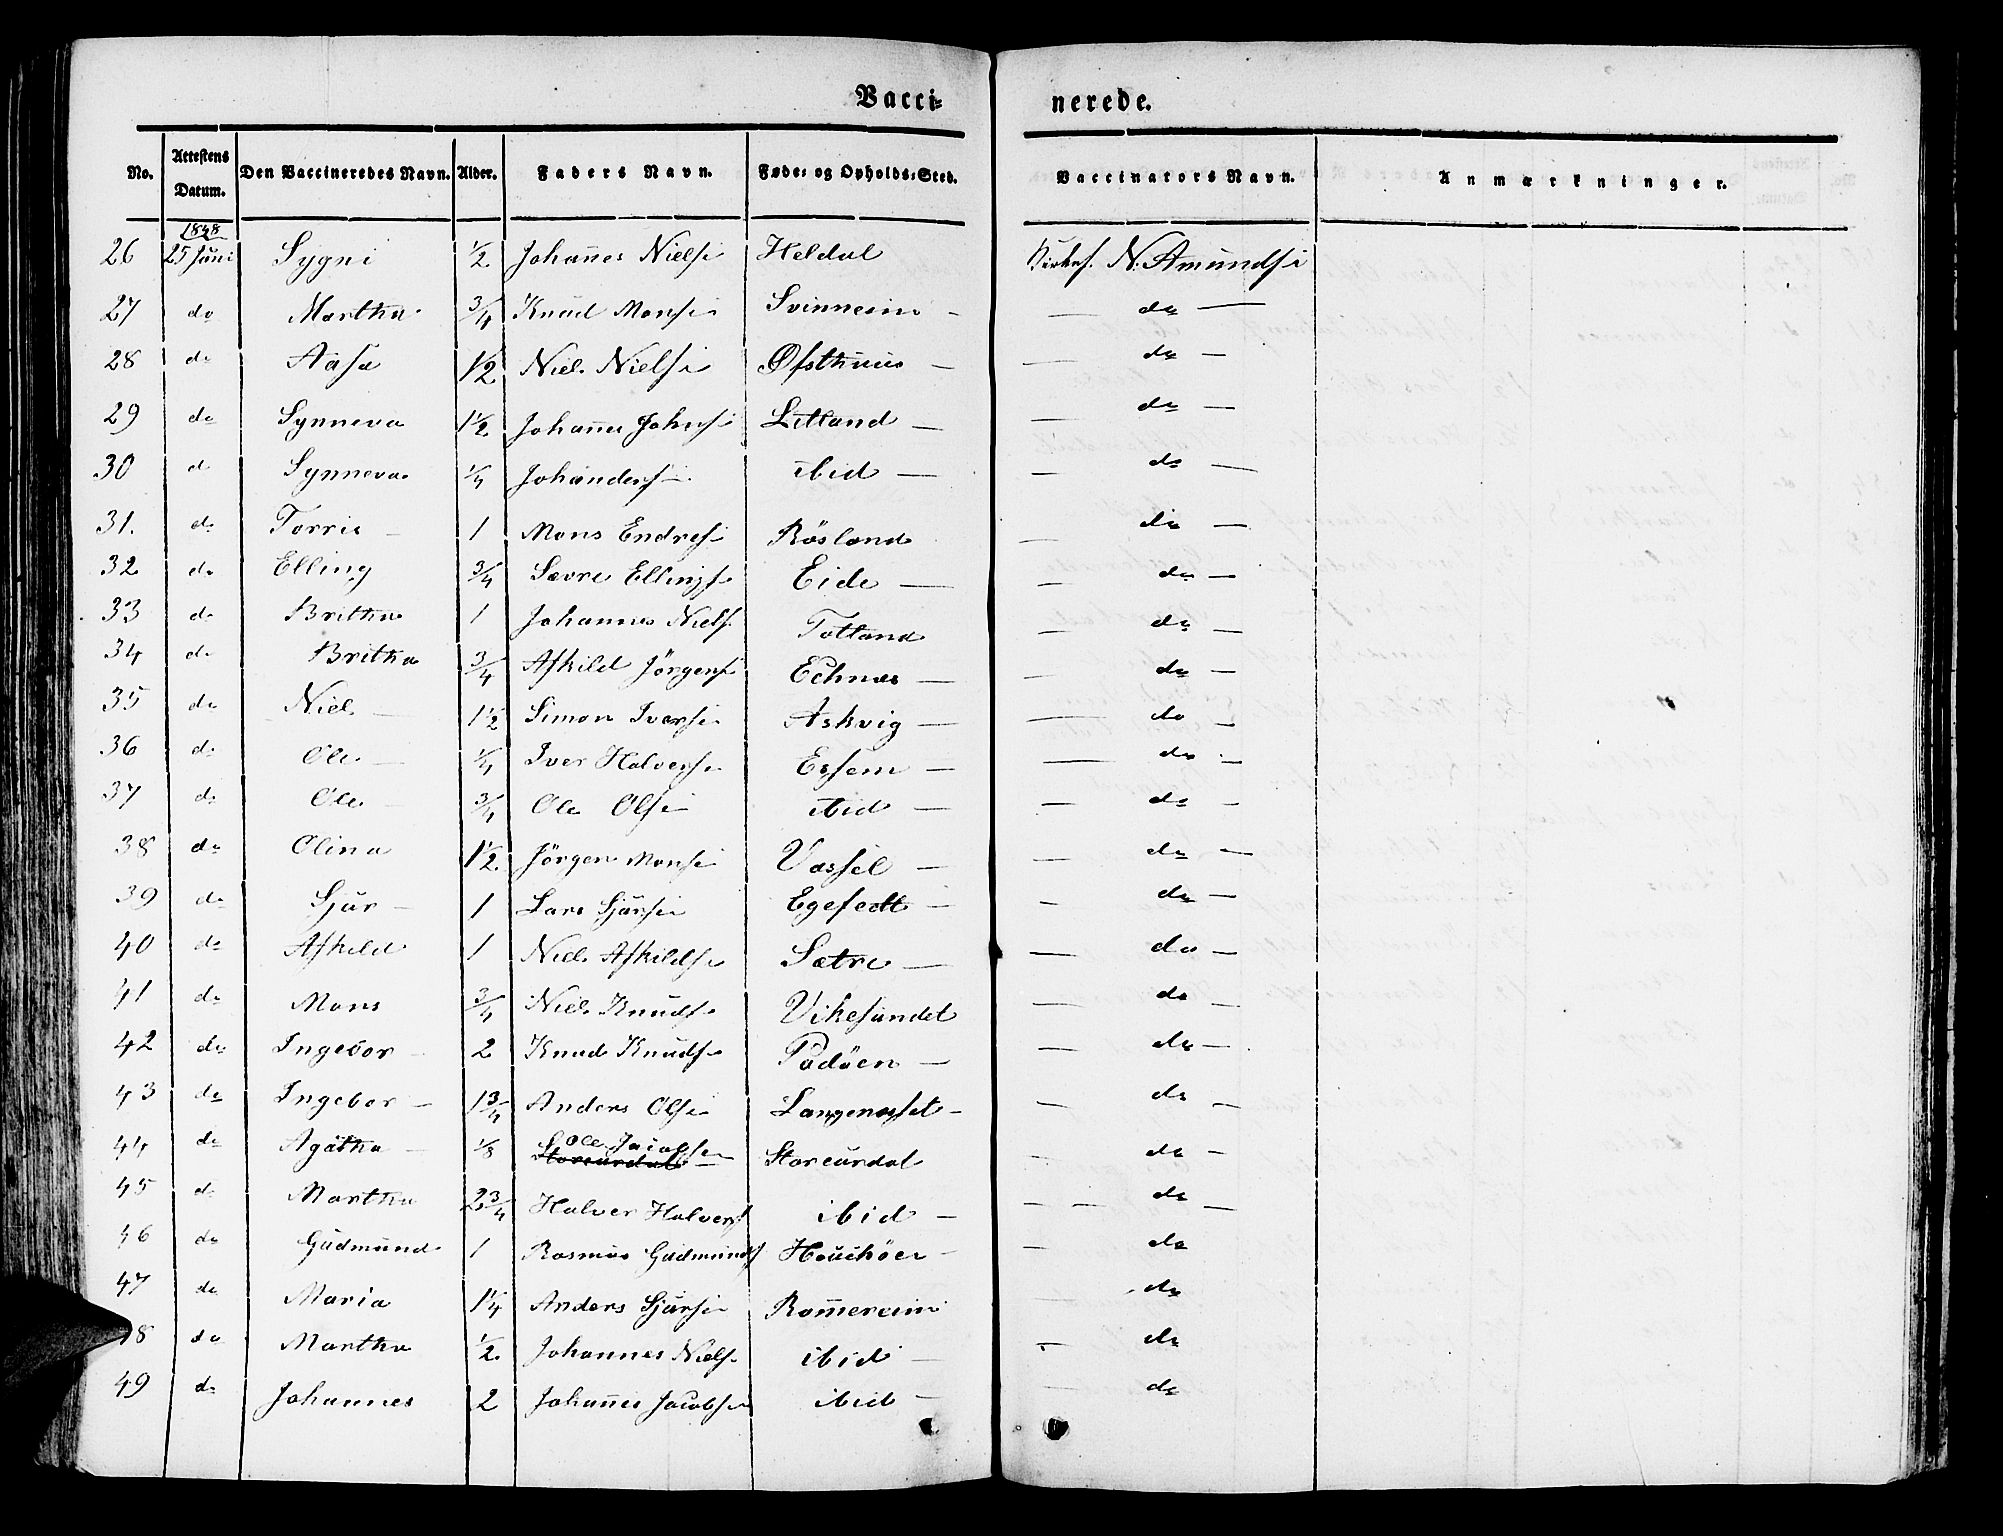 Vacci- nerede.
No. Attestens Datum. Den Vaccineredes Navn. Alder. Faders Navn. Føde- og Opholds-Sted. Vaccinators Navn. Anmærkninger.
1848
26 25 Juni Sygni 1/2 Johan̄es Nielse Heldal N. Amundse
27 do Martha 3/4 Knud Monse Svinneim — — do —
28 do Aasa 1/2 Niels Nielse Øfsthuus — — do —
29 do Synneva 1 1/2 Johan̄es Johnse Litland — — do —
30 do Synneva 1/4 ibid — — do —
31. do Torris — 1 Mons Endrese Røsland — do —
32 do Elling 3/4 Sævre Ellingse Eide — — do —
33 do Britha 1 Johannes Niels Totland — do —
34 do Britha 3/4 Askild Jörgense Echnæs — — do —
35 do Niels — 1 1/2 Simon Iverse Askvig — — do —
36 do Ole — 1/4 Iver Halverse Essem — — do —
37 do Ole — 3/4 Ole Olse ibid — — do —
38 do Olina 1 1/2 Jörgen Monse Vassel — — do —
39 do Sjur — 1 Lars Sjurse — — do —
40 do Askild 1 Niels Askildse Sætre — — do —
41 do Mons 3/4 Niels Knudse Vikesundet — do —
42 do Ingebor — 2 Knud Knudse Padöen — — do —
43 do Ingebor — 1 3/4 Anders Olse Langenesset — — do —
44 do Agatha — 1/8 Ole Jacobsen Storeurdal — do —
45 do Martha 2 3/4 Halver Halvers ibid — — do —
46 do Gudmund 1 Rasmus Gudmunds — do
47 do Maria 1 1/4 Anders Sjurse Rom̄ereim do
48 do Martha 1/2 Johannes Niels ibid — — do
49 do Johannes 2 Johan̄es Jacobse ibid — — do